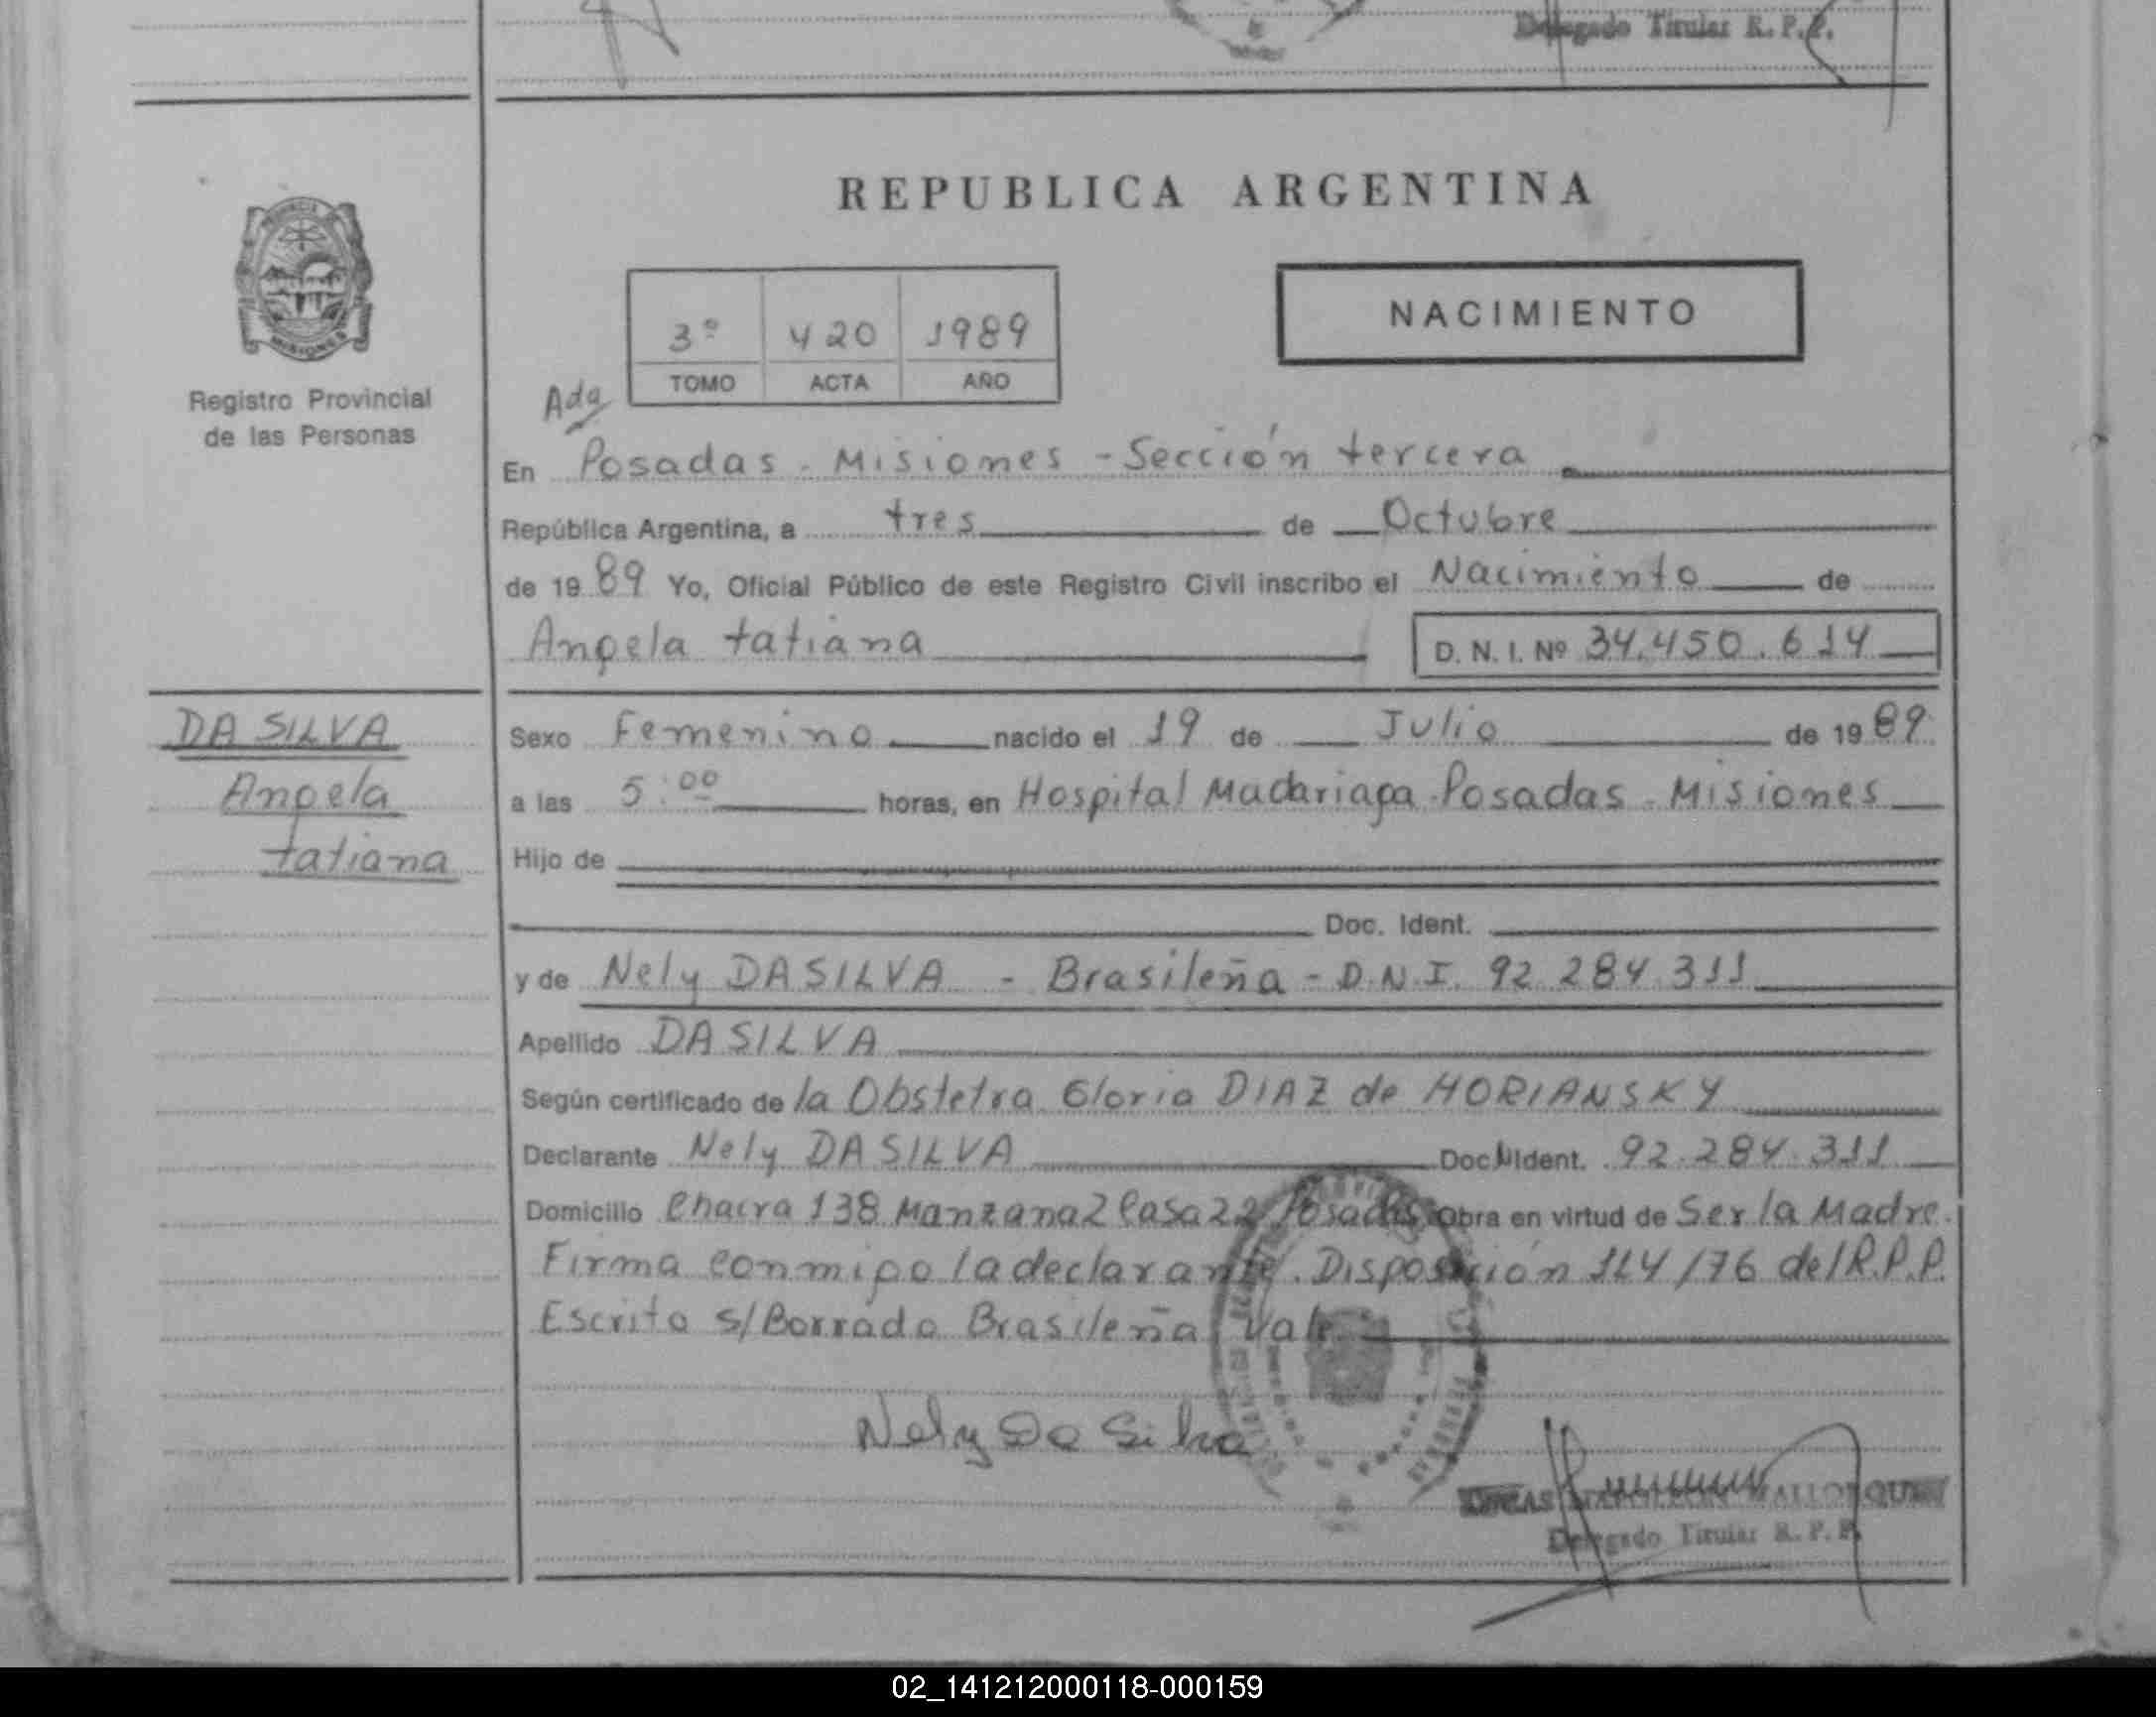 Delegado Titular R. P. P.
REPUBLICA ARGENTINA
3º 420 1989
TOMO ACTA AÑO
NACIMIENTO
Registro Provincial
de las Personas
Ada
En Posadas - Misiones - Sección tercera
República Argentina, a tres de Octubre
de 1989 Yo, Oficial Público de este Registro Civil inscribo el Nacimiento de
Angela tatiana D. N. I. Nº 34.450.614
DA SILVA
Angela
tatiana
Sexo Femenino nacido el 19 de Julio de 1989
a las 5:00 horas, en Hospital Madariaga - Posadas - Misiones
Hijo de
Doc. Ident.
y de Nely DA SILVA - Brasileña - D.N.I. 92.284.311
Apellido DA SILVA
Según certificado de la Obstetra Gloria DIAZ de HORIANSKY
Declarante Nely DA SILVA Doc. Ident. 92.284.311
Domicilio Chacra 138 Manzana 2 Casa 22 Posadas Obra en virtud de Ser la Madre.
Firma conmigo la declarante. Disposición 114/76 del R.P.P.
Escrito s/Borrado Brasileña Vale
Nely Da Silva
Delegado Titular R. P. P.
02_141212000118-000159